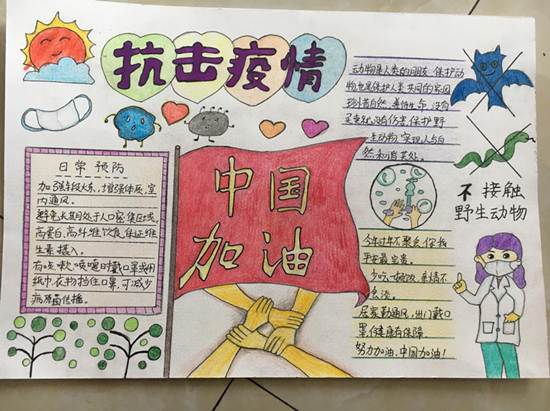 抗击疫情
动物是人类的朋友,保护动
物也是保护人类共同的家园
珍惜自然,善待生命,没有
买卖就没有伤害,保护野
生动物,实现人与自
然和谐共处。
日常预防
加强锻炼,增强体质,室
内通风。
避免长时间处于人口密集区域。
高蛋白,高纤维饮食,保证维
生素摄入。
有咳嗽,喷嚏时戴口罩或用
纸巾,衣物挡住口鼻,可减少
病原菌传播。
中国
加油
不接触
野生动物
今年过年不聚会,你我
平安最重要。
少吃一顿饭,亲情不
会淡
居家勤通风,出门戴口
罩,健康有保障。
努力加油,中国加油!